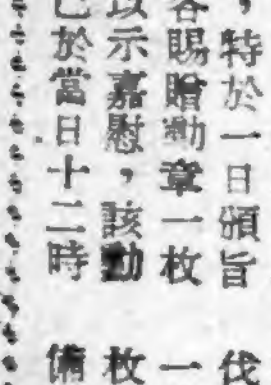 ，特於一日頒旨
客賜贈勳章一枚
以示嘉慰，該勳
已於當日十二時
伐
一
枚
備